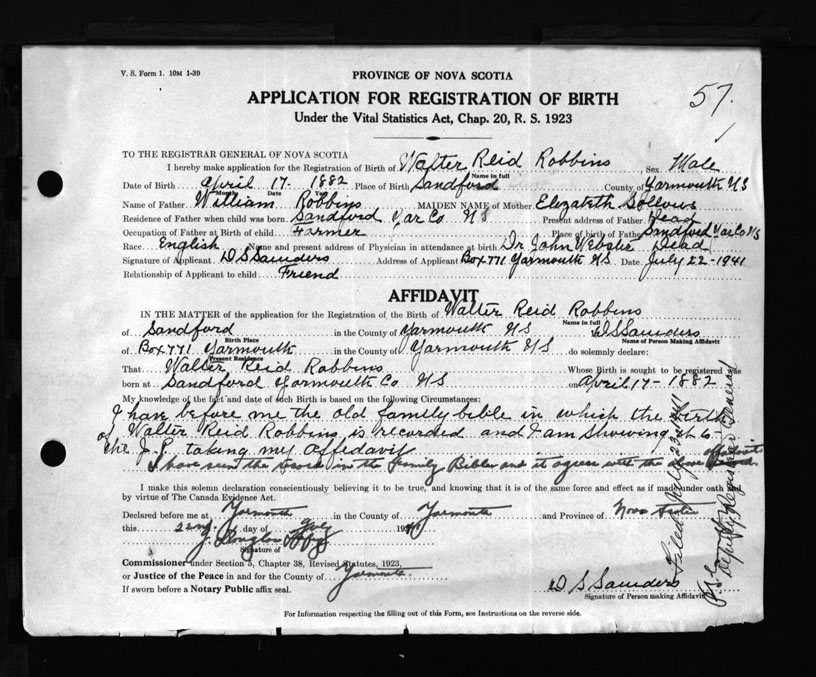 V. S. Form 1. 10M 1-39
PROVINCE OF NOVA SCOTIA
57.
APPLICATION FOR REGISTRATION OF BIRTH
Under the Vital Statistics Act, Chap. 20, R. S. 1923
TO THE REGISTRAR GENERAL OF NOVA SCOTIA
I hereby make application for the Registration of Birth of Walter Reid Robbins Sex Male
Name in full
Date of Birth April 17 - 1882 Place of Birth Sandford County of Yarmouth NS
Month Date Year
Name of Father William Robbins MAIDEN NAME of Mother Elizabeth Sollows
Residence of Father when child was born Sandford Yar Co NS Present address of Father Dead
Occupation of Father at Birth of child Farmer Place of birth of Father Sandford Yar Co NS
Race English Name and present address of Physician in attendance at birth Dr John Webster Dead
Signature of Applicant D S Saunders Address of Applicant Box 771 Yarmouth NS Date July 22 - 1941
Relationship of Applicant to child Friend
AFFIDAVIT
IN THE MATTER of the application for the Registration of the Birth of Walter Reid Robbins
Name in full
of Sandford in the County of Yarmouth NS D S Saunders
Birth Place Name of Person Making Affidavit
of Box 771 Yarmouth in the County of Yarmouth NS do solemnly declare:
Present Residence
That Walter Reid Robbins Whose Birth is sought to be registered was
born at Sandford Yarmouth Co NS on April 17 - 1882
My knowledge of the fact and date of such Birth is based on the following Circumstances:
I have before me the old family bible in which the birth
of Walter Reid Robbins is recorded and I am showing it to
the J.P. taking my affidavit
I have seen the record in the Family Bible and it agrees with the above affidavit
I make this solemn declaration conscientiously believing it to be true, and knowing that it is of the same force and effect as if made under oath and
by virtue of The Canada Evidence Act.
Declared before me at Yarmouth in the County of Yarmouth and Province of Nova Scotia
this 22nd day of July 1941
J. Douglas
Signature of
Commissioner under Section 5, Chapter 38, Revised Statutes, 1923,
or Justice of the Peace in and for the County of Yarmouth
If sworn before a Notary Public affix seal.
D S Saunders
Signature of Person making Affidavit
For Information respecting the filling out of this Form, see Instructions on the reverse side.
Filed July 1941
Deputy Registrar General